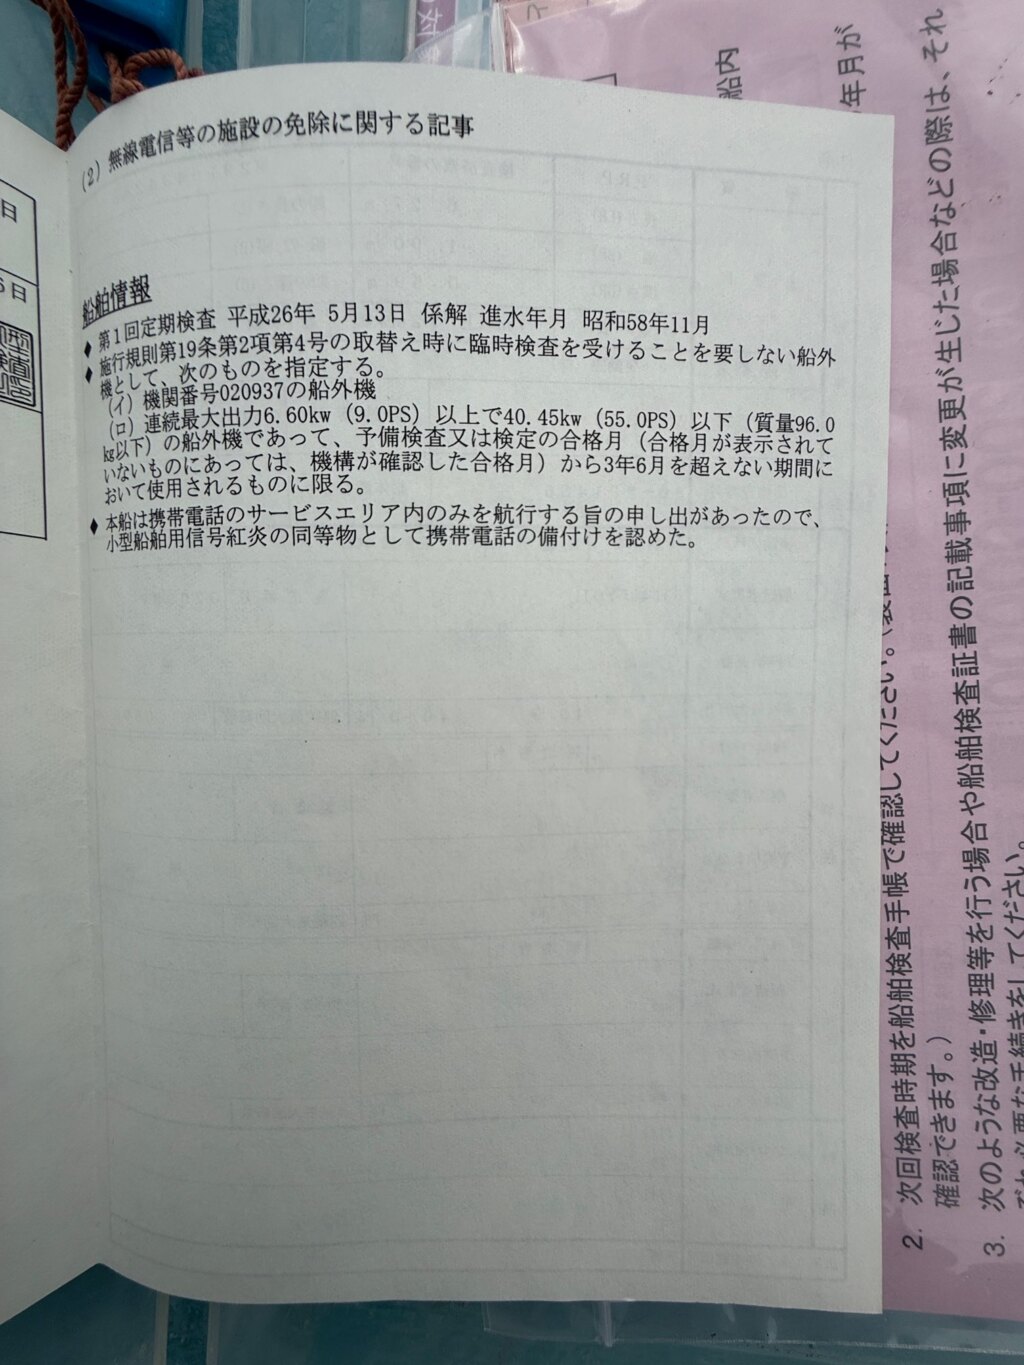 (2) 無線電信等の施設の免除に関する記事
船舶情報
◆ 第1回定期検査 平成26年 5月13日 係解 進水年月 昭和58年11月
◆ 施行規則第19条第2項第4号の取替え時に臨時検査を受けることを要しない船外
機として、次のものを指定する。
(イ) 機関番号020937の船外機
(ロ) 連続最大出力6.60kw (9.0PS) 以上で40.45kw (55.0PS) 以下 (質量96.0
kg以下) の船外機であって、予備検査又は検定の合格月 (合格月が表示されて
いないものにあっては、機構が確認した合格月) から3年6月を超えない期間に
おいて使用されるものに限る。
◆ 本船は携帯電話のサービスエリア内のみを航行する旨の申し出があったので、
小型船舶用信号紅炎の同等物として携帯電話の備付けを認めた。
日
6日
船内
年月が
2. 次回検査時期を船舶検査手帳で確認してください。
確認できます。)
3. 次のような改造・修理等を行う場合や船舶検査証書の記載事項に変更が生じた場合などの際は、それ
ぞれ必要な手続きをしてください。